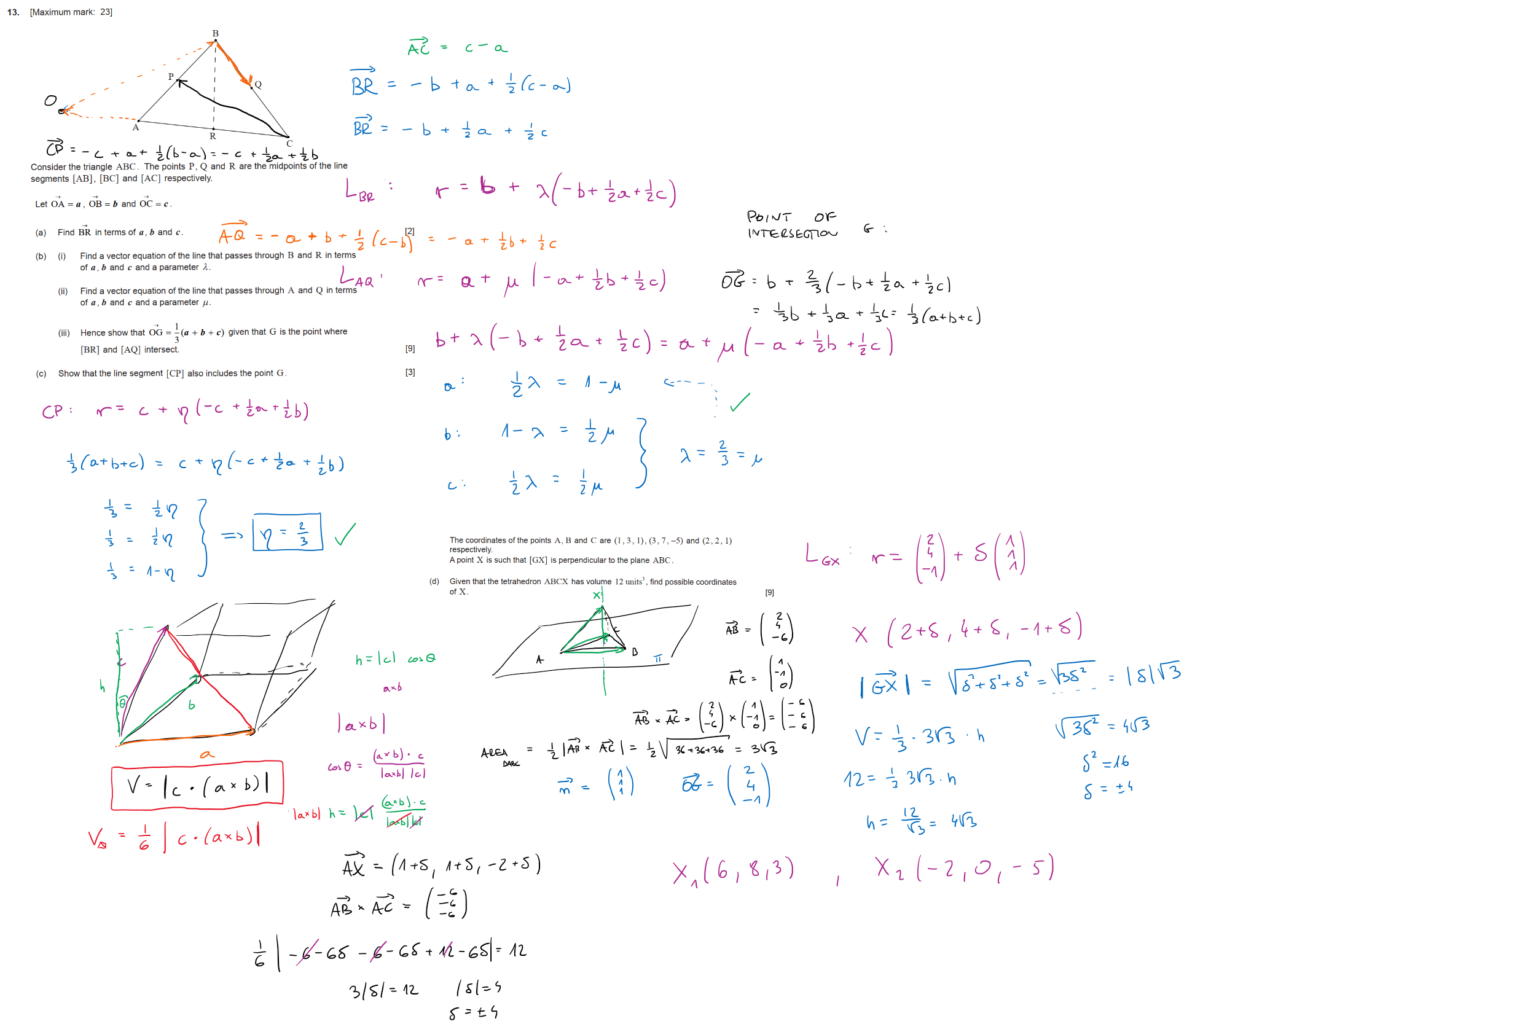 13. [Maximum mark: 23]
B
P
Q
O
A
R
C
CP = -c + a + ½(b-a) = -c + ½a + ½b
Consider the triangle ABC. The points P, Q and R are the midpoints of the line
segments [AB], [BC] and [AC] respectively.
Let OA = a, OB = b and OC = c.
(a) Find BR in terms of a, b and c. [2]
(b) (i) Find a vector equation of the line that passes through B and R in terms
of a, b and c and a parameter λ.
(ii) Find a vector equation of the line that passes through A and Q in terms
of a, b and c and a parameter μ.
(iii) Hence show that OG = 1/3 (a + b + c) given that G is the point where
[BR] and [AQ] intersect. [9]
(c) Show that the line segment [CP] also includes the point G. [3]
AC = c - a
BR = -b + a + ½(c-a)
BR = -b + ½a + ½c
L BR : r = b + λ(-b + ½a + ½c)
AQ = -a + b + ½(c-b) = -a + ½b + ½c
L AQ : r = a + μ(-a + ½b + ½c)
POINT OF
INTERSECTION G :
OG = b + 2/3(-b + ½a + ½c)
= 1/3b + 1/3a + 1/3c = 1/3(a+b+c)
b + λ(-b + ½a + ½c) = a + μ(-a + ½b + ½c)
a: ½λ = 1-μ ✓
b: 1-λ = ½μ
c: ½λ = ½μ
λ = 2/3 = μ
CP: r = c + η(-c + ½a + ½b)
1/3(a+b+c) = c + η(-c + ½a + ½b)
1/3 = ½η
1/3 = ½η
1/3 = 1-η
=> η = 2/3 ✓
The coordinates of the points A, B and C are (1, 3, 1), (3, 7, −5) and (2, 2, 1)
respectively.
A point X is such that [GX] is perpendicular to the plane ABC.
(d) Given that the tetrahedron ABCX has volume 12 units³, find possible coordinates
of X. [9]
h
θ
c
b
a
h = |c| cos θ
a×b
|a×b|
cos θ = (a×b)·c / |a×b| |c|
|a×b| h = |c| (a×b)·c / |a×b||c|
V = |c·(a×b)|
V = 1/6 |c·(a×b)|
X
A
B
C
π
AB = (2 4 -6)
AC = (1 -1 0)
AB × AC = (2 4 -6) × (1 -1 0) = (-6 -6 -6)
AREA = ½|AB × AC| = ½√36+36+36 = 3√3
n = (1 1 1) OG = (2 4 -1)
L GX : r = (2 4 -1) + δ(1 1 1)
X (2+δ, 4+δ, -1+δ)
|GX| = √δ²+δ²+δ² = √3δ² = |δ|√3
V = 1/3 · 3√3 · h
12 = 1/3 3√3 · h
h = 12/√3 = 4√3
√3δ² = 4√3
δ² = 16
δ = ±4
X₁(6, 8, 3) , X₂(-2, 0, -5)
AX = (1+δ, 1+δ, -2+δ)
AB × AC = (-6 -6 -6)
1/6 |-6-6δ -6-6δ +12-6δ| = 12
3|δ| = 12 |δ| = 4
δ = ±4